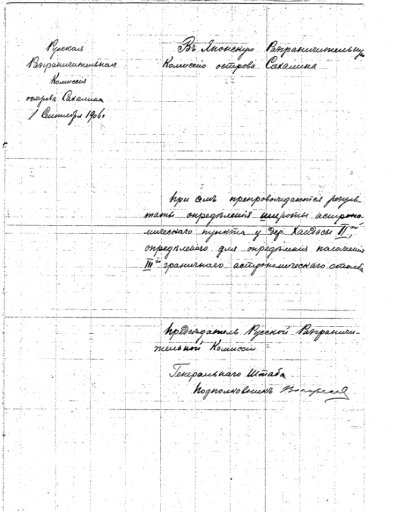 Русская
Разграничительная
Комиссия
острова Сахалина
1 Сентября 1906
Въ Японскую Разграничительную
Комиссію острова Сахалина
При семъ препровождаются резуль-
таты опредѣленія широты астроно-
мическаго пункта у дер. Хандасы II
для опредѣленія положенія
III граничнаго астрономическаго столба
Предсѣдатель Русской Разграничи-
тельной Комиссіи
Генеральнаго Штаба
Подполковникъ